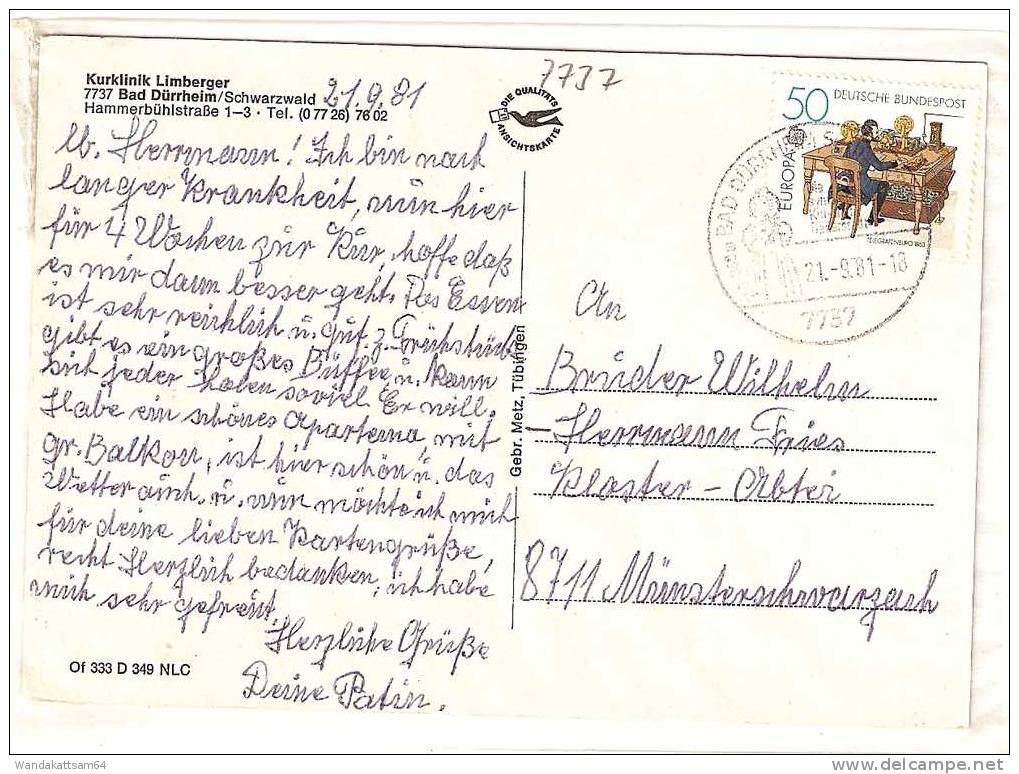 Kurklinik Limberger
7737 Bad Dürrheim/Schwarzwald
Hammerbühlstraße 1–3 · Tel. (0 77 26) 76 02
21.9.81
7737
DIE QUALITÄTS
ANSICHTSKARTE
50 DEUTSCHE BUNDESPOST
EUROPA
TELEGRAFENBÜRO 1863
BAD DÜRRHEIM
21.-9.81-18
7737
lb. Herrmann! Ich bin nach
langer Krankheit, nun hier
für 4 Wochen zur Kur, hoffe daß
es mir dann besser geht. Das Essen
ist sehr reichlich u. gut. z. Frühstück
gibt es ein großes Büffee u. kann
sich jeder holen soviel Er will.
Habe ein schönes Apartema, mit
gr. Balkon, ist hier schön u. das
Wetter auch. u. nun möchte ich mich
für deine lieben Kartengrüße,
recht Herzlich bedanken, ich habe
mich sehr gefreut.
Herzliche Grüße
Deine Patin.
Of 333 D 349 NLC
Gebr. Metz, Tübingen
An
Bruder Wilhelm
Herrmann Fries
Kloster – Abtei
8711 Münsterschwarzach
Wandakattsam64
delcampe.net